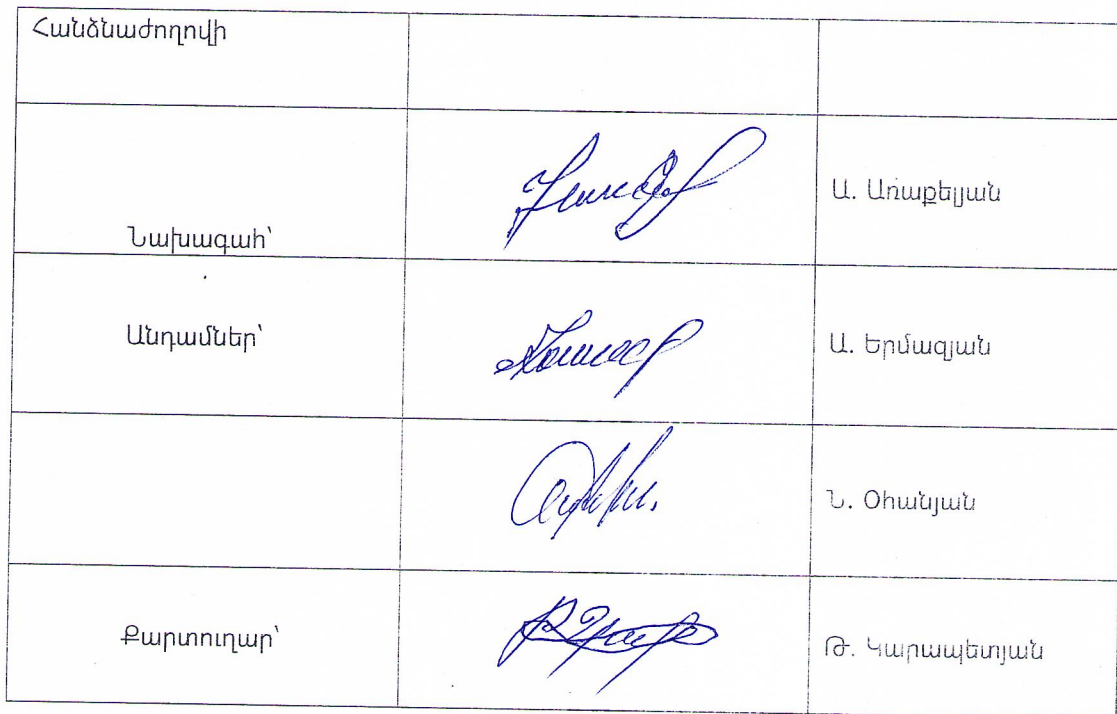 Հանձնաժողովի
Նախագահ՝
Ա. Առաքելյան
Անդամներ՝
Ա. Երմազյան
Ն. Օհանյան
Քարտուղար՝
Թ. Կարապետյան